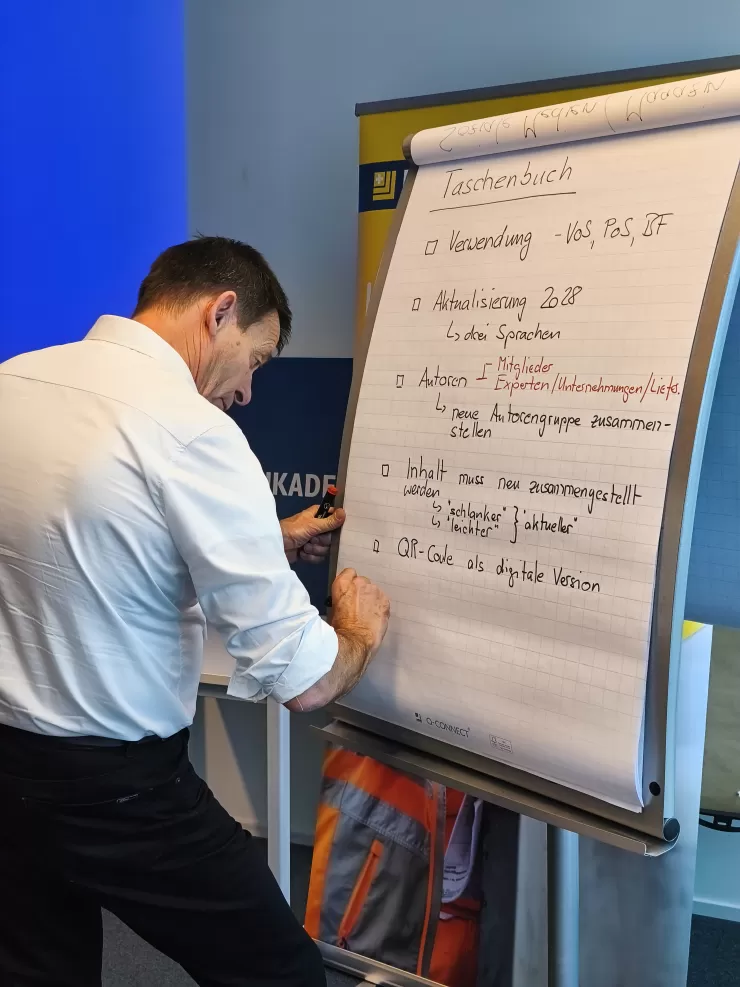 Taschenbuch
Verwendung - VoS, PoS, BF
Aktualisierung 2028
↳ drei Sprachen
Autoren - Mitglieder
Experten/Unternehmungen/Liefs.
↳ neue Autorengruppe zusammen-
stellen
Inhalt muss neu zusammengestellt
werden
↳ "schlanker" } "aktueller"
↳ "leichter"
QR-Code als digitale Version
Q-CONNECT